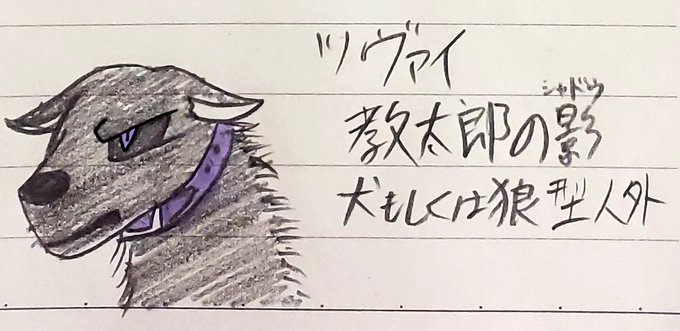 ツヴァイ
教太郎の影
シャドウ
犬もしくは狼型人外